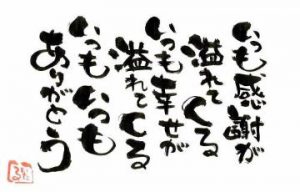 いつも感謝が
溢れてくる
いつも幸せが
溢れてくる
いつもいつも
ありがとう